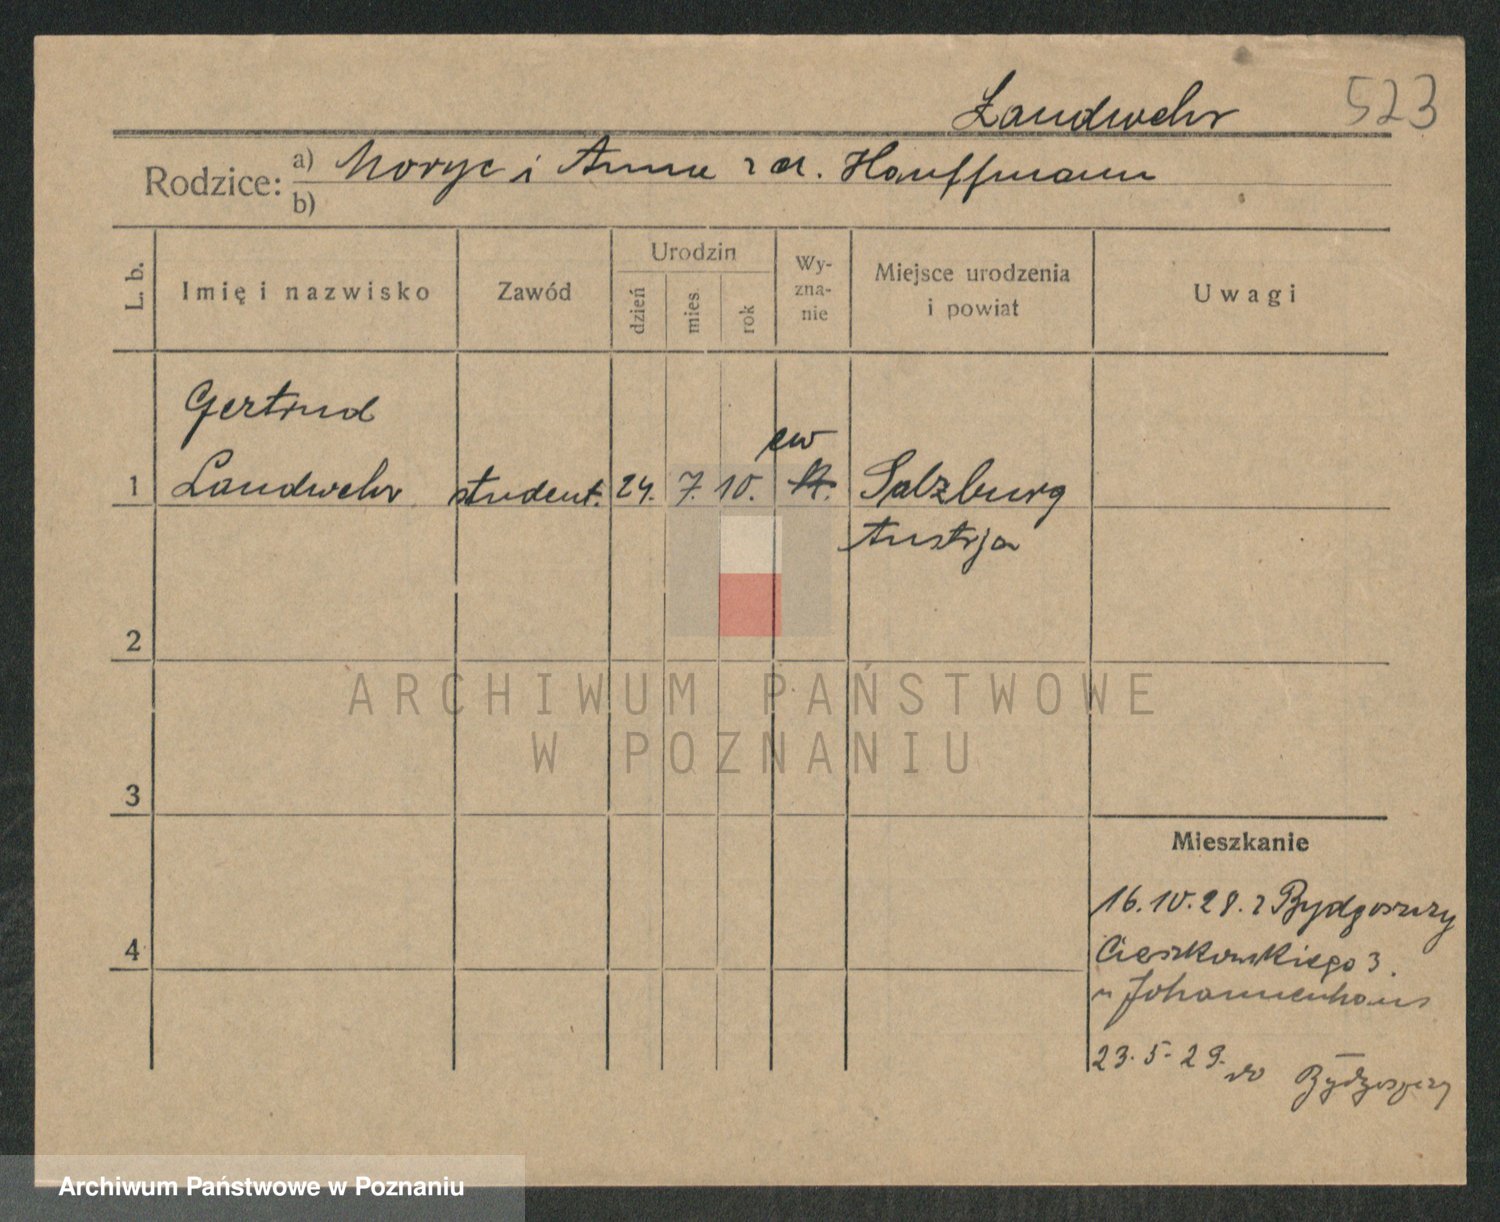 Landwehr 523
Rodzice: a) Moryc i Anna z d. Hauffmann
b)
L. b. Imię i nazwisko Zawód Urodzin dzień mies. rok Wyznanie Miejsce urodzenia i powiat Uwagi
Gertrud
ew
1 Landwehr student. 24. 7. 10. k. Salzburg
Austrja
2
ARCHIWUM PAŃSTWOWE
W POZNANIU
3
Mieszkanie
16.10.28. z Bydgoszczy
4 Cieszkowskiego 3.
u Johannenhaus
23.5.29. do Bydgoszczy
Archiwum Państwowe w Poznaniu